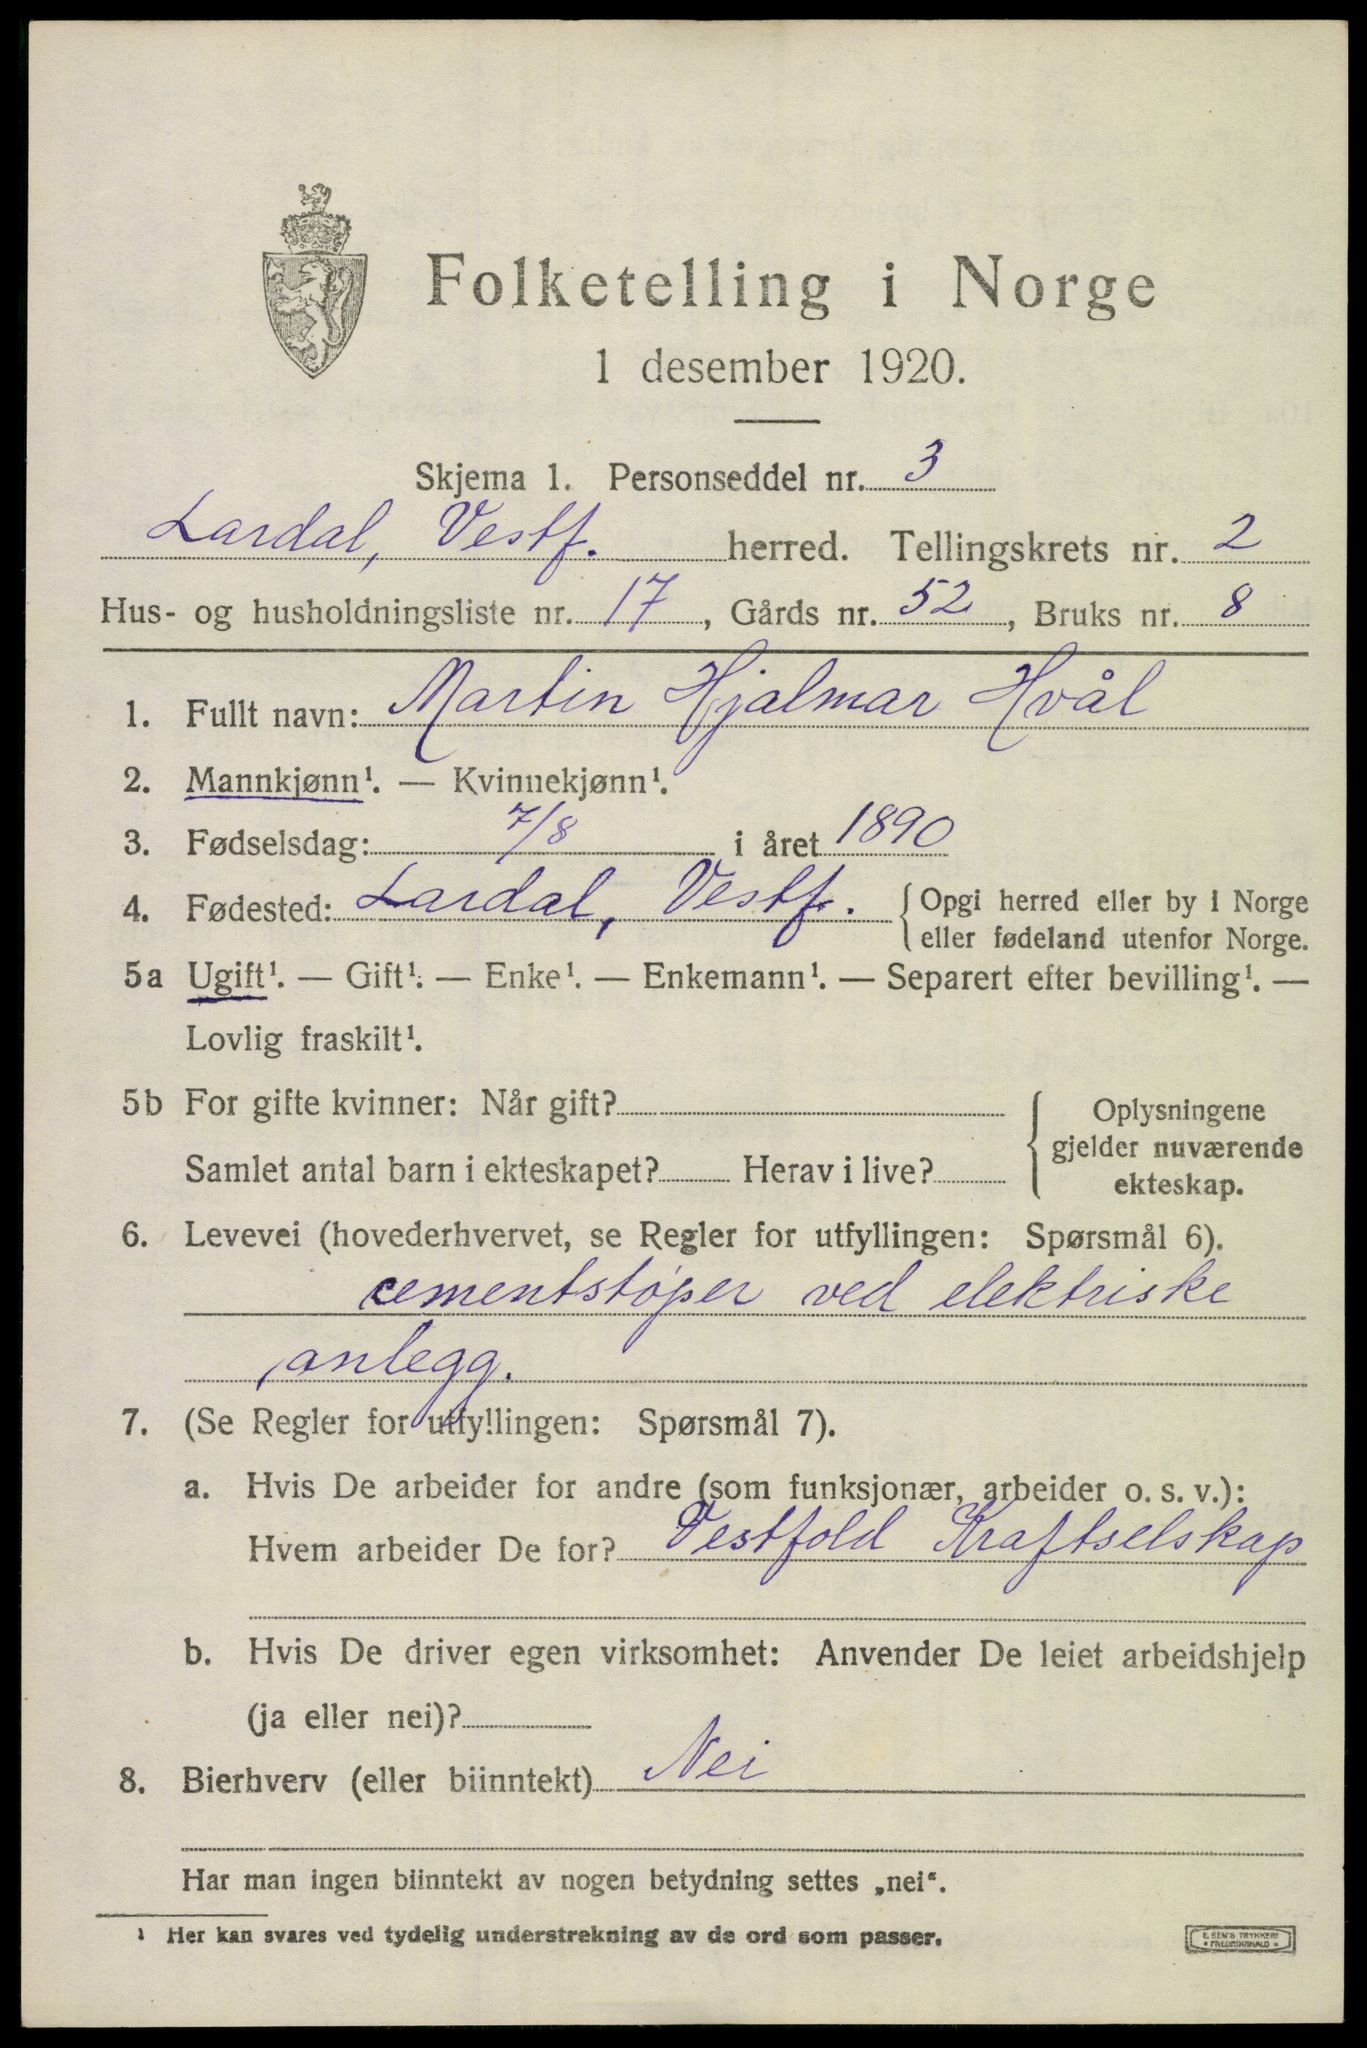 Folketelling i Norge
1 desember 1920.
Skjema 1. Personseddel nr. 3
Lardal, Vestf. herred. Tellingskrets nr. 2
Hus- og husholdningsliste nr. 17, Gårds nr. 52, Bruks nr. 8
1. Fullt navn: Martin Hjalmar Hvål
2. Mannkjønn¹. — Kvinnekjønn¹.
3. Fødselsdag: 7/8 i året 1890
4. Fødested: Lardal, Vestf. { Opgi herred eller by i Norge
eller fødeland utenfor Norge.
5a Ugift¹. — Gift¹. — Enke¹. — Enkemann¹. — Separert efter bevilling¹. —
Lovlig fraskilt¹.
5b For gifte kvinner: Når gift?
Samlet antal barn i ekteskapet? Herav i live?
Oplysningene
gjelder nuværende
ekteskap.
6. Levevei (hovederhvervet, se Regler for utfyllingen: Spørsmål 6).
cementstøper ved elektriske
anlegg.
7. (Se Regler for utfyllingen: Spørsmål 7).
a. Hvis De arbeider for andre (som funksjonær, arbeider o. s. v.):
Hvem arbeider De for? Vestfold Kraftselskap
b. Hvis De driver egen virksomhet: Anvender De leiet arbeidshjelp
(ja eller nei)?
8. Bierhverv (eller biinntekt) Nei
Har man ingen biinntekt av nogen betydning settes „nei“.
¹ Her kan svares ved tydelig understrekning av de ord som passer.
E. SEM'S TRYKKERI
• FREDRIKSHALD •